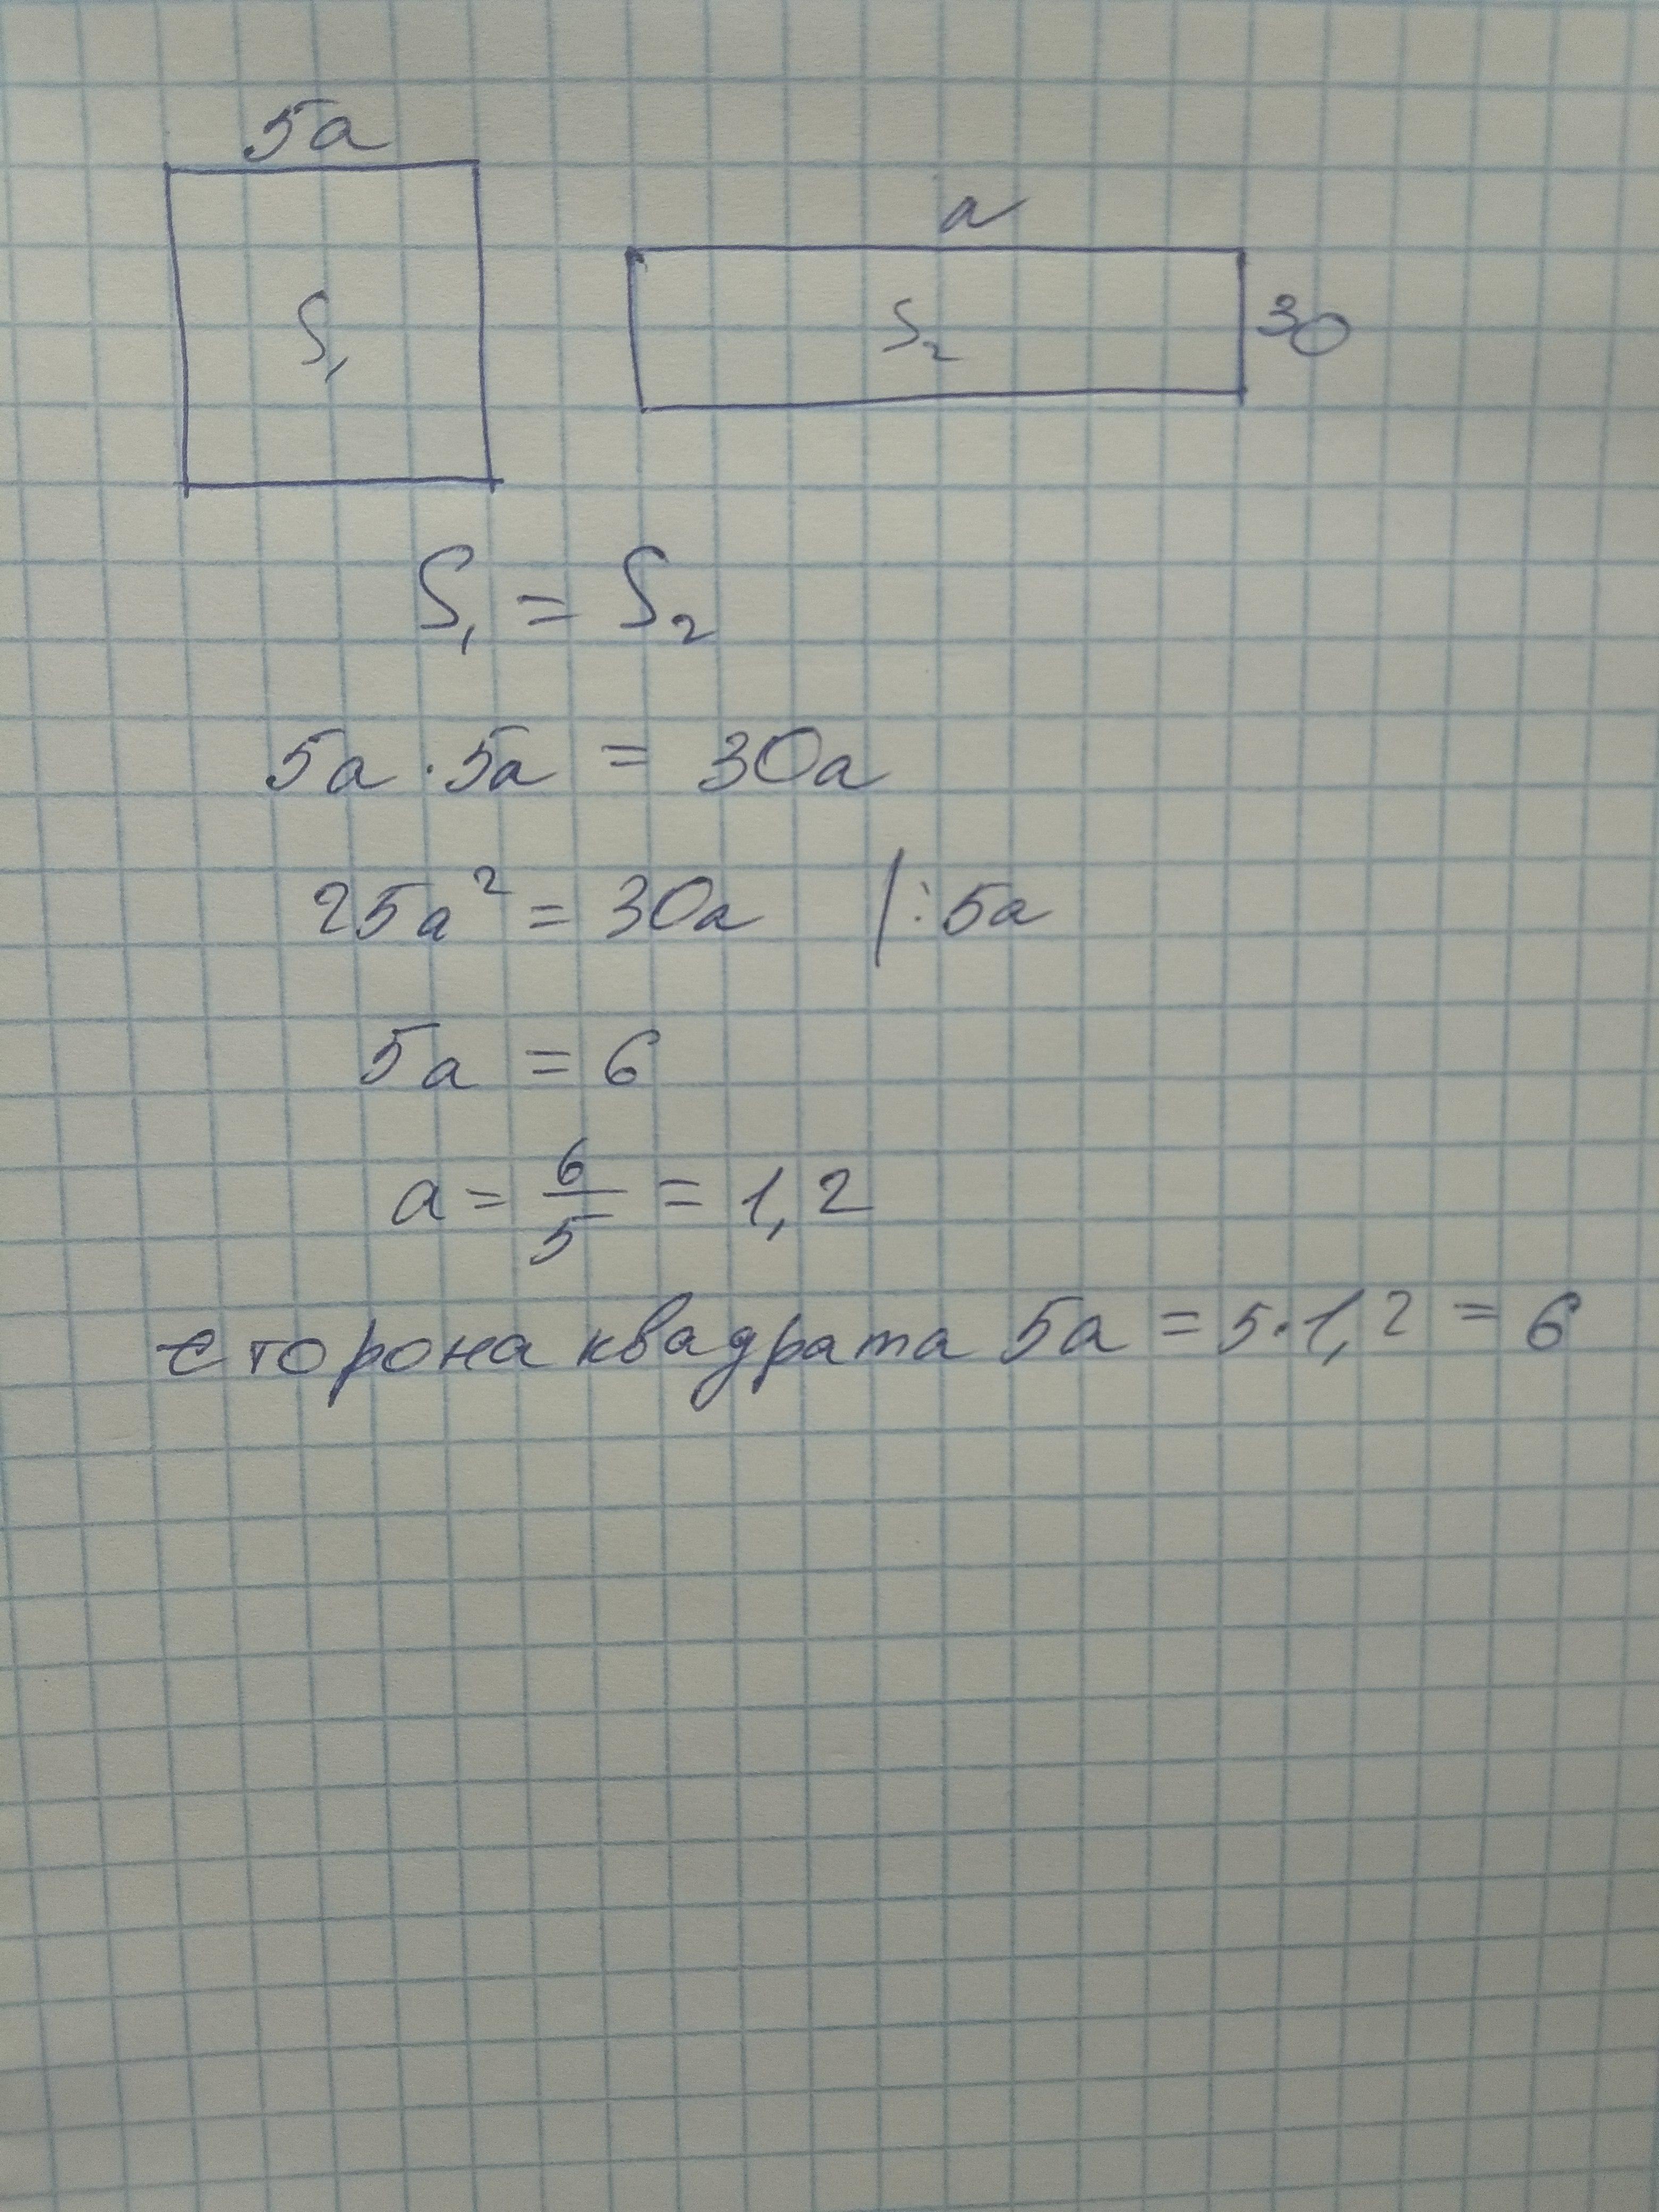 5a
a
S₁
S₂
30
S₁ = S₂
5a · 5a = 30a
25a² = 30a | : 5a
5a = 6
a = 6/5 = 1,2
сторона квадрата 5a = 5·1,2 = 6